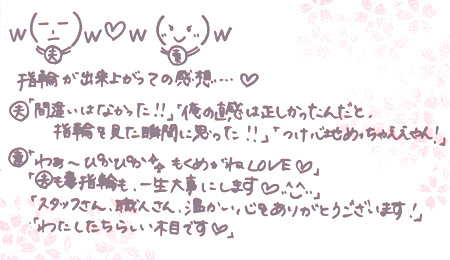 w(夫)w♡w(妻)w
指輪が出来上がっての感想…♡
夫「間違いはなかった!!」「俺の直感は正しかったんだと、
指輪を見た瞬間に思った!!」「つけ心地めっちゃええやん!」
妻「わぁ～ぴかぴか✨もくめがねLOVE♡」
「夫も指輪も、一生大事にします♡^^」
「スタッフさん、職人さん、温かい心をありがとうございます!」
「わたしたちらしい木目です♡」